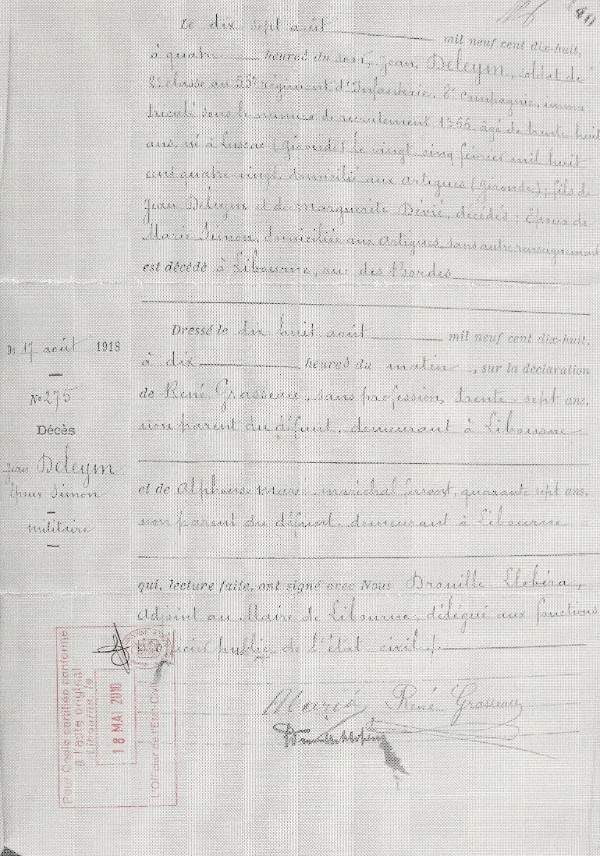 Le dix sept août mil neuf cent dix-huit,
à quatre heures du soir, Jean Deleym, soldat de
2e classe au régiment d'Infanterie, campagnie, imma
triculé sous le numéro de recrutement 1366, âgé de trente huit
ans, né à Lussac (Gironde) le vingt cinq février mil huit
cent quatre vingt, domicilié aux Artigues (Gironde); fils de
Jean Deleym et de Marguerite décédés; Époux de
Marie Simon, domiciliée aux Artigues, sans autre renseignement
est décédé à Libourne, des Bordes
Du 17 août 1918
No 275
Décès
Jean Deleym
Époux Simon
militaire
Dressé le dix huit août mil neuf cent dix-huit,
à dix heures du matin, sur la déclaration
de René Grasseau, sans profession, trente sept ans,
non parent du défunt, demeurant à Libourne
et de Alphonse maréchal ferrant, quarante sept ans,
non parent du défunt demeurant à Libourne
qui, lecture faite, ont signé avec Nous Drouille Llobéra,
Adjoint au Maire de Libourne, délégué aux fonctions
d'officier public de l'état civil.
René Grasseau
Pour Copie certifiée conforme
à l'acte original
Libourne, le
18 MAI 2010
L'Officier de l'Etat-Civil